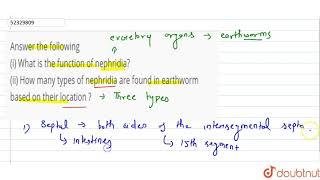 52329809
excretory organs → earthworms
Answer the following
(i) What is the function of nephridia?
(ii) How many types of nephridia are found in earthworm
based on their location ? → Three types
1) Septal → both sides of the intersegmental septa.
↳ intestines ↳ 15th segment
doubtnut